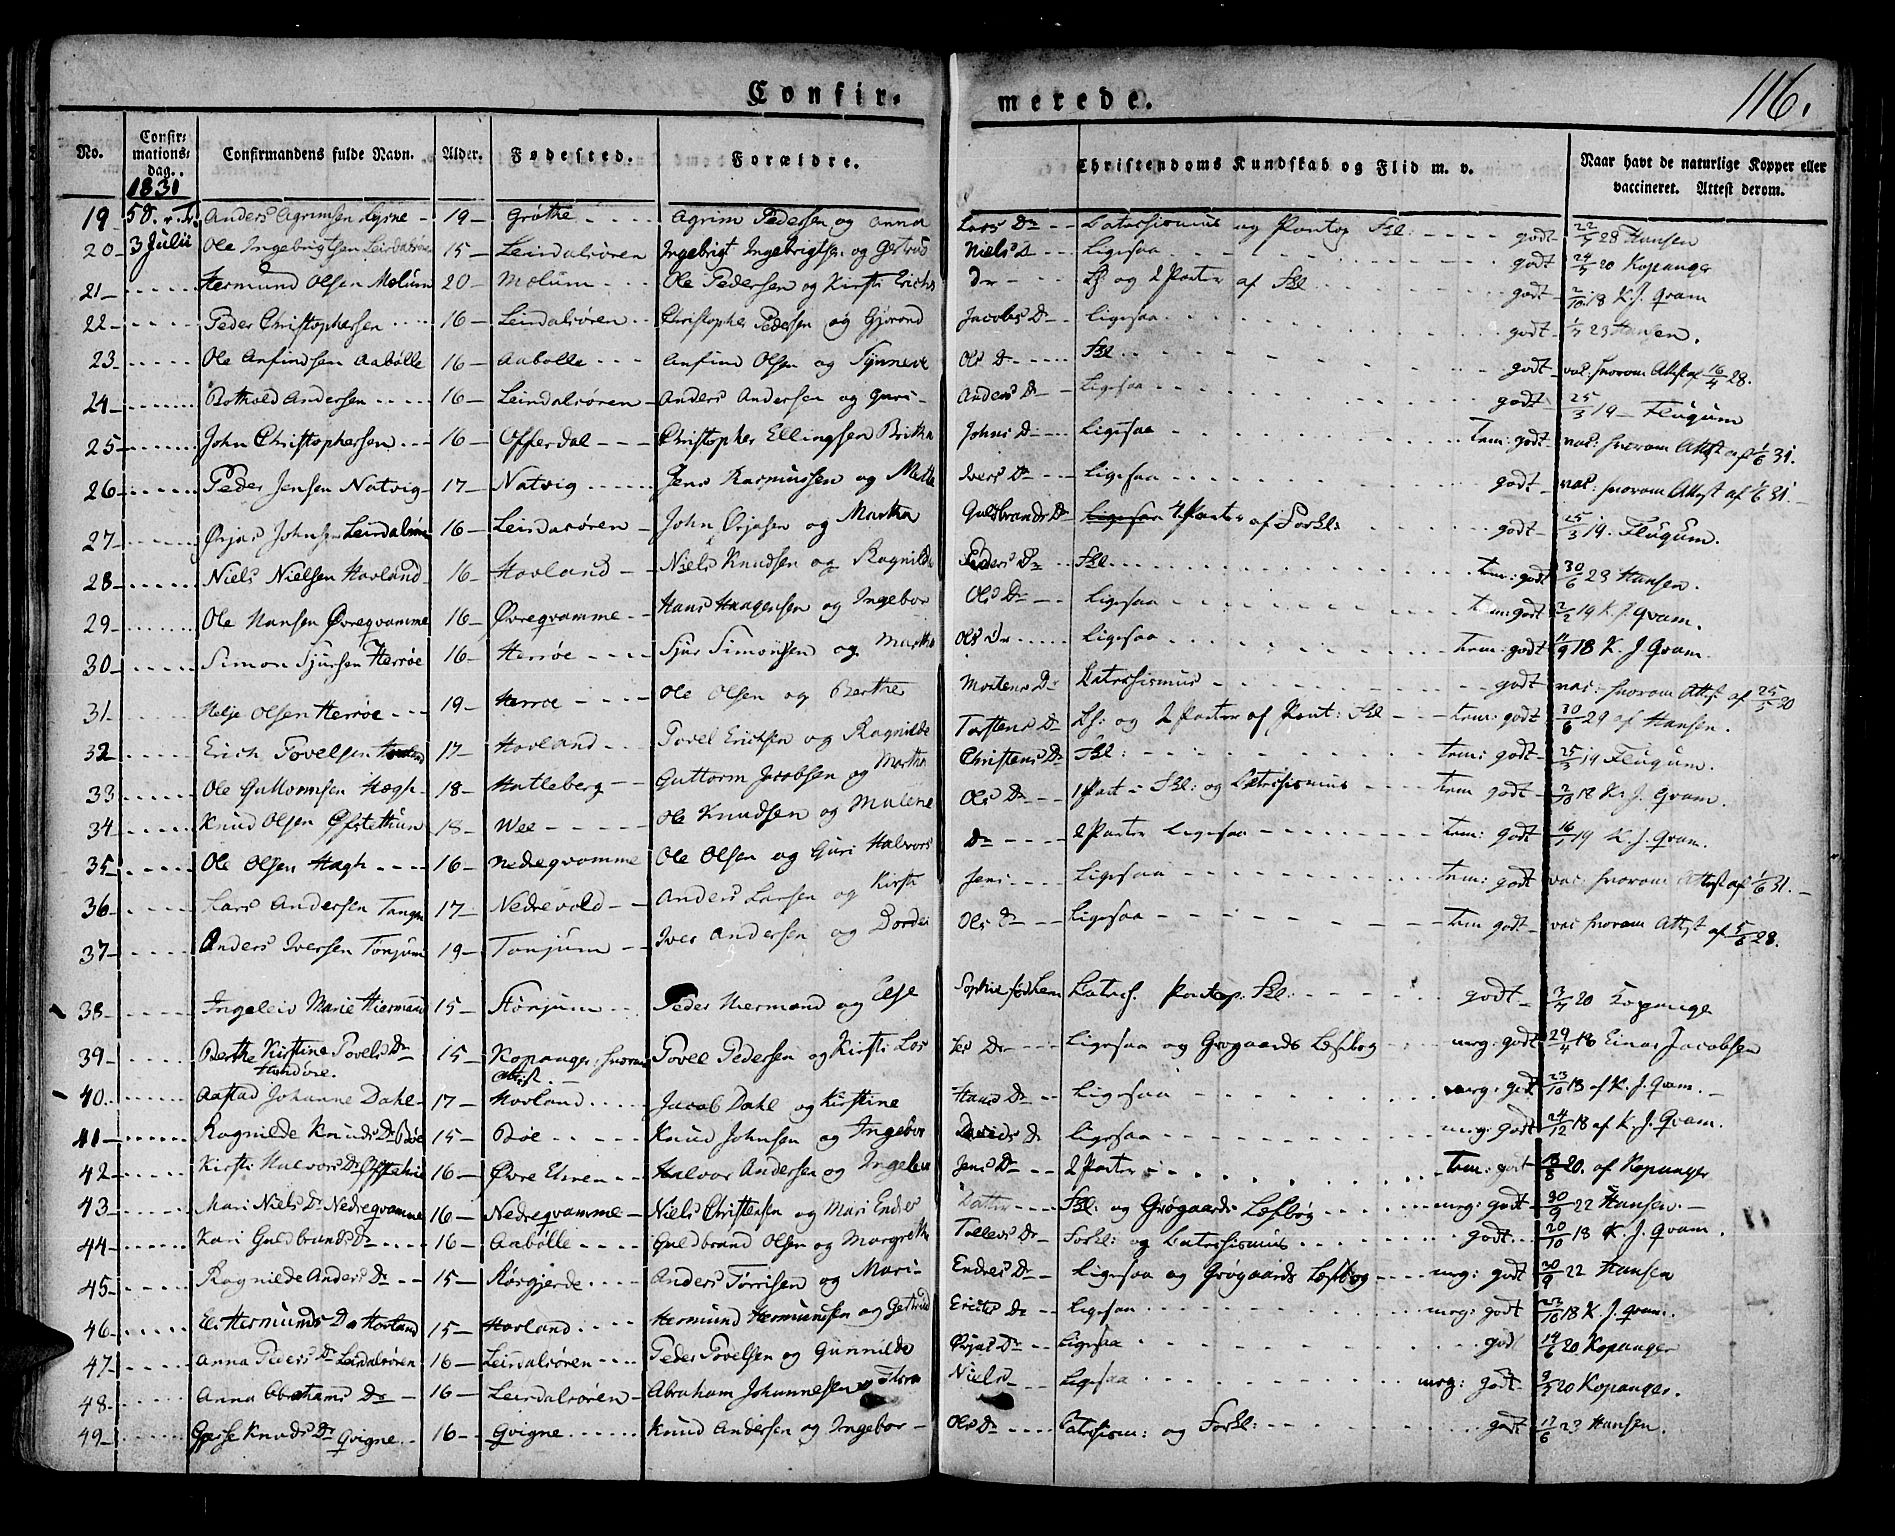 Confir- merede. 116.
No. Confirmations-dag. Confirmandens fulde Navn. Alder. Fødested. Forældre. Christendoms Kundskab og Flid m. v. Naar havt de naturlige Kopper eller vaccineret. Attest derom.
1831
19 5 S. e. Tr. Anders Agrimsen Lysne 19 Grøthe Agrim Pedersen og Anna Lars Dr Catechismus og Pontop. Fkl: godt 28 Hansen
20 3 Julii Ole Ingebrigtsen 15 Leirdalsøren Ingebrigt Ingebrigtsen og Niels D Ligesaa godt 24/5 20 Kopanger
21 Hermund Olsen Molum 20 Molum Ole Pedersen og Kirsti Erichs Dr og 2 Parter af Fkl godt 2/10 18 K. J. Qvam
22 Peder Christophersen 16 Leirdalsøren Christopher Pedersen og Gjørond Jacobs D Ligesaa godt 23 Hansen.
23 Ole Anfindsen Aabølle 16 Aabølle Anfind Olsen og Synneve Ols D Fkl. godt vac: hvorom Attest af 16/4 28.
24 Bothold Andersen 16 Leirdalsøren Anders Andersen og Guri Anders D Ligesaa godt 25/3 19 Flugum
25 John Christophersen 16 Offerdal Christopher Ellingsen Britha Johns D Ligesaa tem: godt vac: hvorom Attest af 1/6 31.
26 Peder Jensen Natvig 17 Natvig Jens Rasmussen og Mette Ivers D Ligesaa godt vac: hvorom Attest af 1/6 31.
27 Ørjas Johnsen 16 Leirdalsøren John Ørjasen og Martha Guldbrands D Ligesaa 4 Parter af Forkl: godt 25/3 19. Flugum.
28 Niels Nielsen Hovland 16 Hovland Niels Knudsen og Ragnilde Peders Dr Fkl. tem: godt 30/6 23 Hansen.
29 Ole Hansen Øvreqvamme 16 Øvreqvamme Hans Haagensen og Ingebor Ols Dr Ligesaa tem: godt 2/2 19 K. J. Qvam.
30 Simon Sjursen Herrøe 16 Herrøe Sjur Simonsen og Martha Ols Dr Ligesaa tem: godt 11/9 18 K. J. Qvam.
31 Helje Olsen Herrøe 19 Herrøe Ole Olsen og Berthe Mortens Dr Catechismus godt vac: hvorom Attest af 25/5 20
32 Erich Povelsen 17 Hovland Povel Ericksen og Ragnilde Torstens D og 2 Parter af Pont: Fkl tem: godt 30/6 29 af Hansen.
33 Ole Guttormsen Hægh 18 Hatleberg Guttorm Jacobsen og Martha Christens D Fkl: tem: godt 25/3 19 Flugum.
34 Knud Olsen Ofstethun 18 Wee Ole Knudsen og Malene Ols D 1 Part Fkl: og Catechismus tem godt 2/10 18 K. J. Qvam.
35 Ole Olsen Hagh 16 Nedreqvamme Ole Olsen og Guri Halvors D 2 Parter Ligesaa tem: godt 16/7 19 K. J. Qvam.
36 Lars Andersen 17 Nedrevold Anders Larsen og Kirsti Jens Ligesaa tem: godt vac: hvorom Attest af 1/6 31.
37 Anders Iversen Tonjum 19 Tonjum Iver Andersen og Dordei Ols D Ligesaa tem godt vac hvorom Attest af 5/6 28.
38 Ingeleiv Marie Hiermand 15 Peder Hiermand og Else Sophie Catech. Pontop. Fkl: godt 3/7 20 Kopanger
39 Berthe Kirstine Povels Dr 15 Kopanger, hvorom Attest Povel Pedersen og Kirsti Lars Dr Ligesaa og Grøgaards Læsebog meg: godt 29/4 18 Einar Jacobsen
40 Aastad Johanne Dahl 17 Hovland Jacob Dahl og Kirstine Hans Dr Ligesaa meg: godt 23/10 18 af K. J. Qvam.
41 Ragnilde Knuds Dr Bøe 15 Bøe Knud Johnsen og Ingebor Davids D Ligesaa meg: godt 24/12 18 af K. J. Qvam.
42 Kirsti Halvors Dr 16 Øvre Ehren Halvor Andersen og Ingeleiv Jens Dr 2 Parter tem: godt 20. af Kopanger
43 Mari Niels Dr Nedreqvamme 16 Nedreqvamme Niels Christensen og Mari Endres Datter Fkl: og Grøgaards Læsebog meg: godt 30/9 22 Hansen.
44 Kari Guldbrands Dr 16 Aabølle Guldbrand Olsen og Margrethe Tollevs D Forkl: og Catechismus godt 20/10 18 K. J. Qvam.
45 Ragnilde Anders Dr 15 Rørgjerde Anders Torrisen og Mari Endres D Ligesaa og Grøgaards Læsebog meg: godt 30/9 22 Hansen
46 Hermunds D Hovland 15 Hovland Hermund Hermundsen og Gertrud Erichs D Ligesaa meg: godt 22/10 18 K. J. Qvam.
47 Anna Peders Dr Leirdalsøren 16 Leirdalsøren Peder Povelsen og Gunnilde Ørjas Dr Ligesaa godt 14/6 20 Kopanger
48 Anna Abrahams Dr 16 Leirdalsøren Abraham Johannesen og Thora Niels Ligesaa meg: godt 20 Kopanger.
49 Knuds Dr Qvigne 16 Qvigne Knud Andersen og Ingebor Ols Dr Catechism: og Forkl: godt 17/6 23 Hansen.